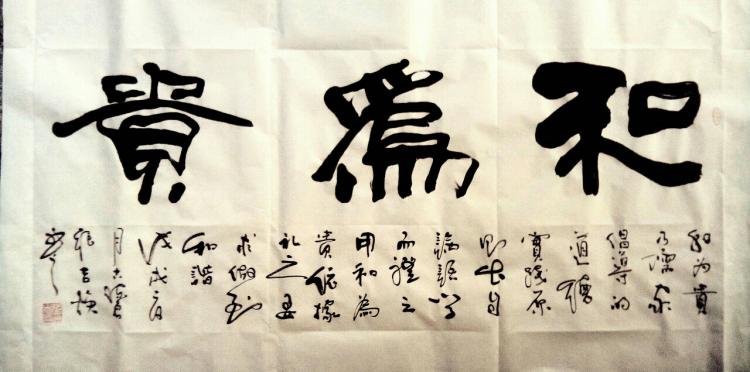 和為貴
和为貴
乃儒家
倡導的
道德
實踐原
則出自
論語学
而禮之
用和為
貴依據
礼之要
求做到
和諧
戊戌